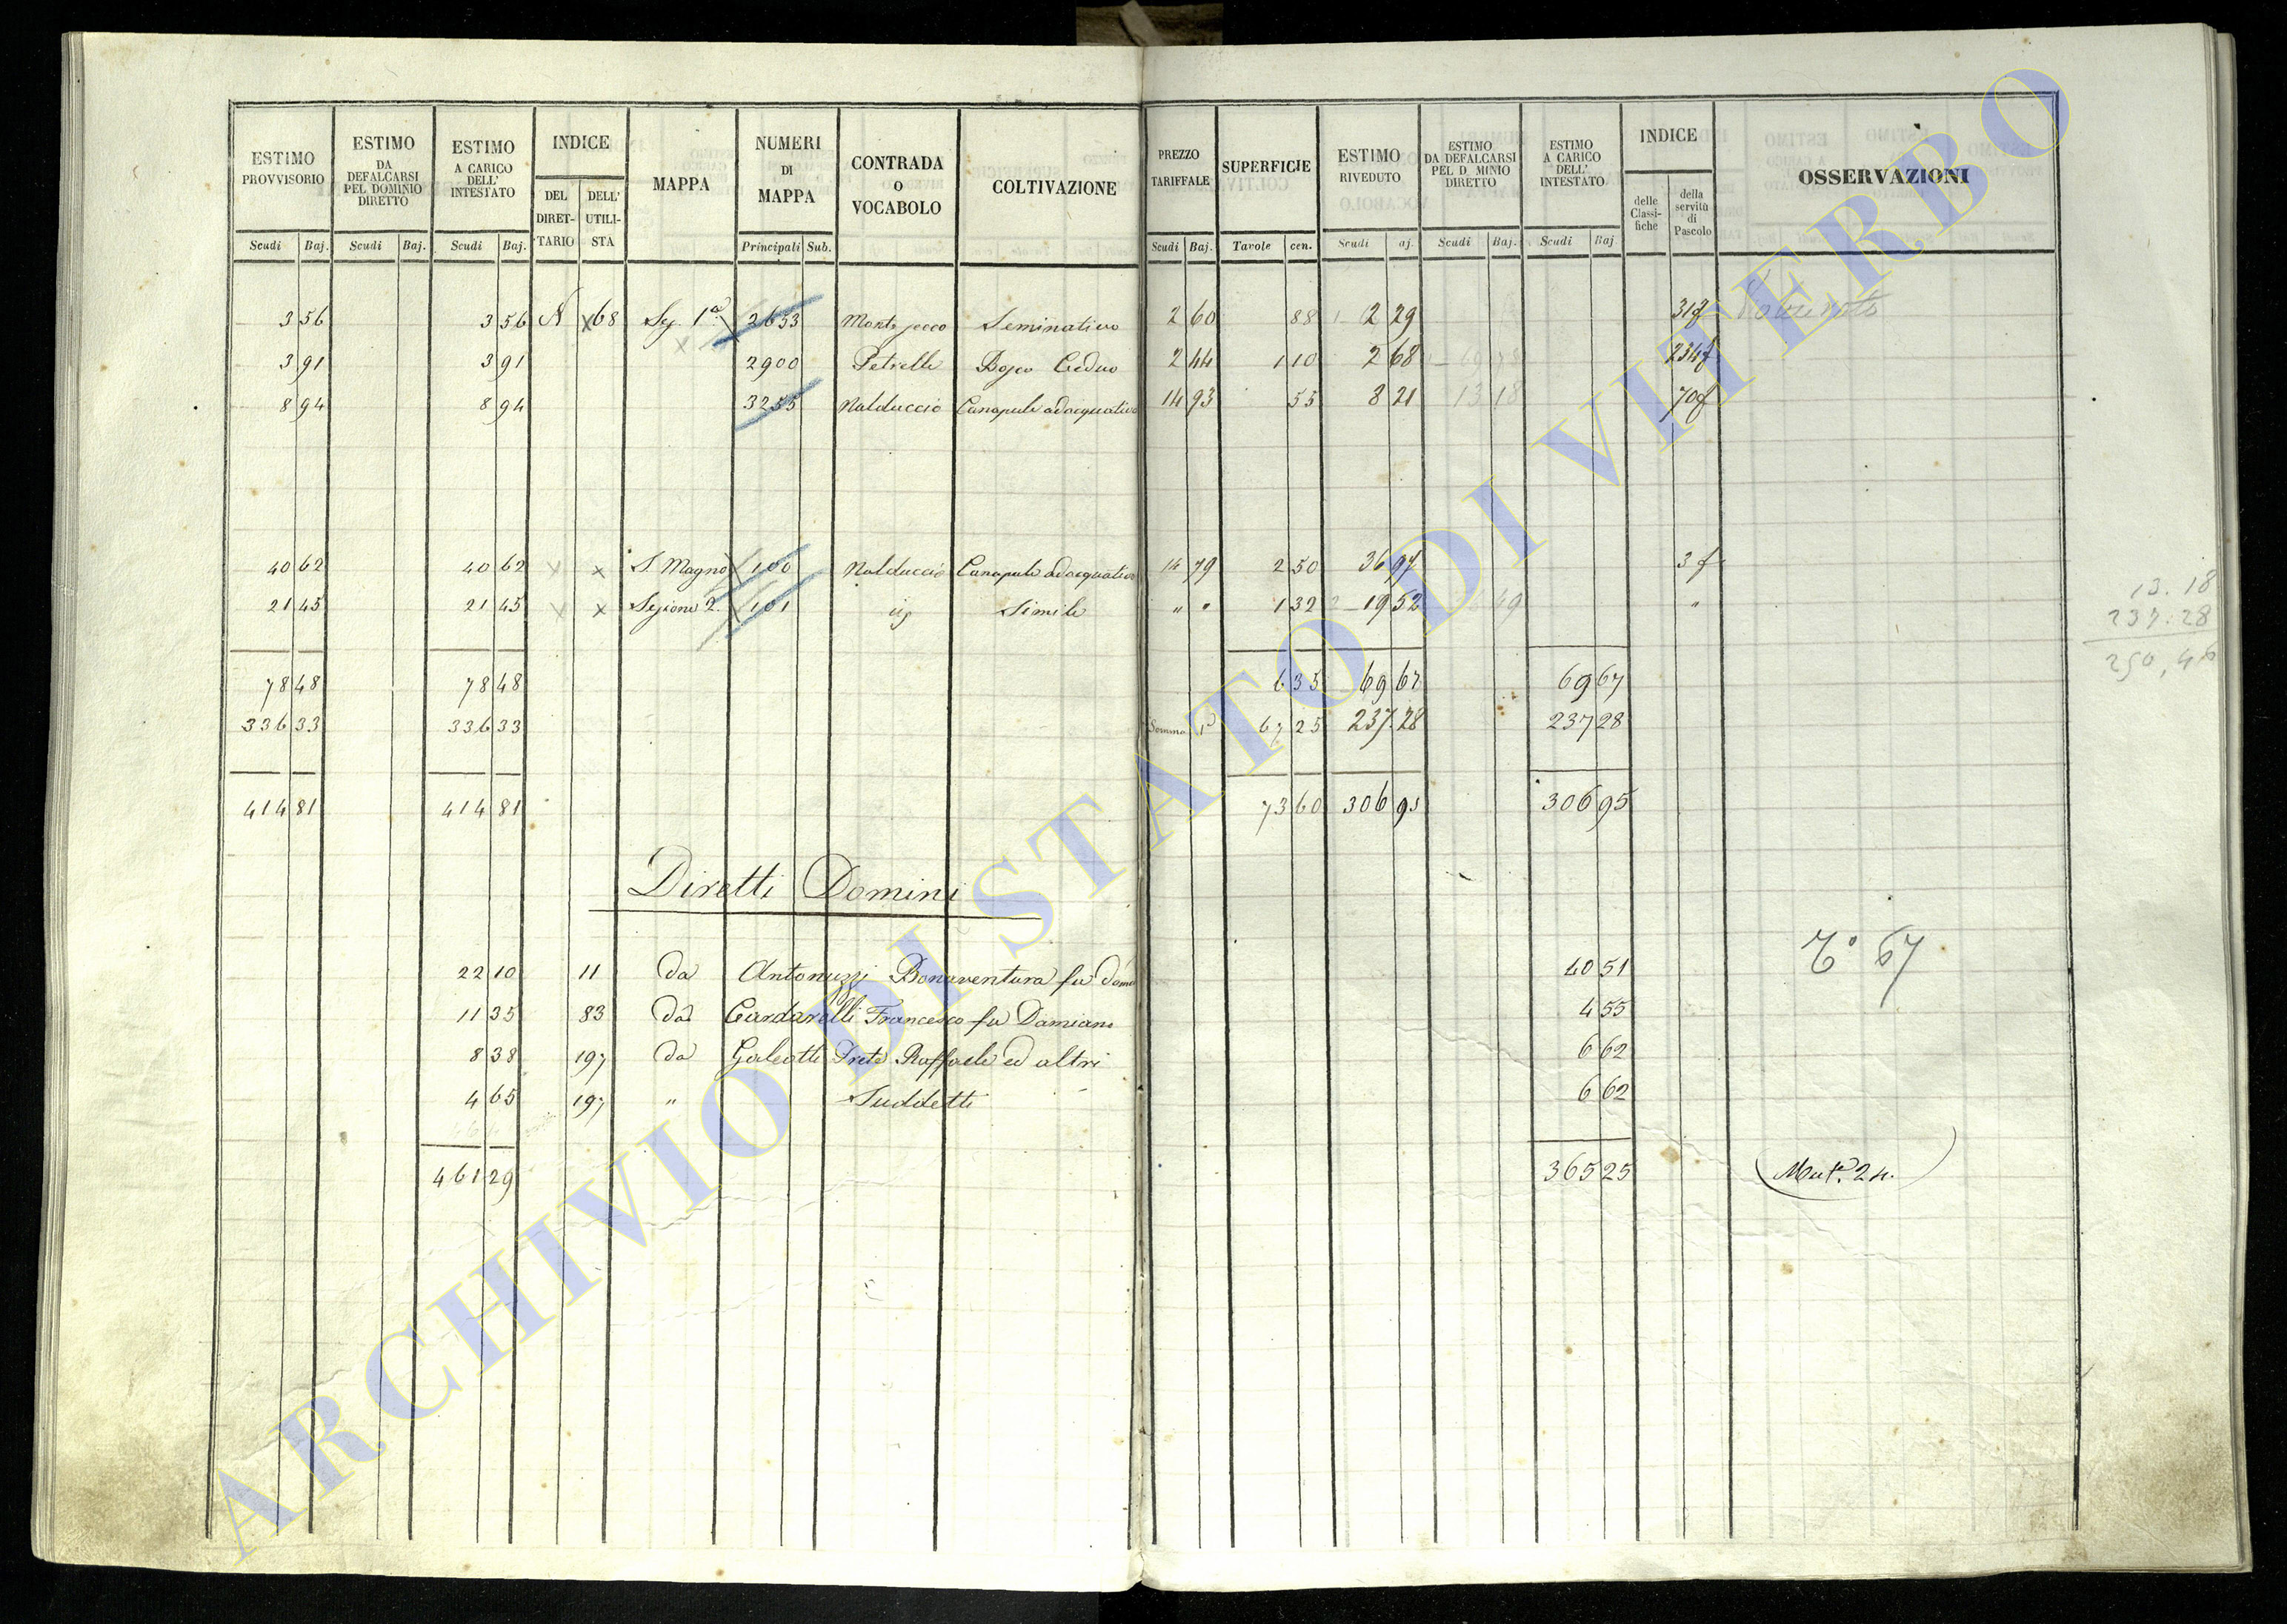 ESTIMO PROVVISORIO Scudi Baj. ESTIMO DA DEFALCARSI PEL DOMINIO DIRETTO Scudi Baj. ESTIMO A CARICO DELL' INTESTATO Scudi Baj. INDICE DEL DIRET-TARIO DELL' UTILI-STA MAPPA NUMERI DI MAPPA Principali Sub. CONTRADA O VOCABOLO COLTIVAZIONE PREZZO TARIFFALE Scudi Baj. SUPERFICIE Tavole cen. ESTIMO RIVEDUTO Scudi aj. ESTIMO DA DEFALCARSI PEL D MINIO DIRETTO Scudi Baj. ESTIMO A CARICO DELL' INTESTATO Scudi Baj INDICE delle Classi-fiche della servitù di Pascolo OSSERVAZIONI
3 56 3 56 N x 68 Sez. 1ª 2653 Monte secco Seminativo 2 60 88 2 29 31f
3 91 3 91 2900 Petrelle Bosco Ceduo 2 44 1 10 2 68 234f
8 94 8 94 3255 Nalduccio Canapule adacquativo 14 93 55 8 21 70f
40 62 40 62 x x S. Magno 100 Nalduccio Canapule adacquativo 14 79 2 50 36 97 3f
21 45 21 45 x x Sezione 2. 101 Simile " " 1 32 19 52 "
78 48 78 48 6 35 69 67 69 67
336 33 336 33 Somma 1ª 67 25 237.28 237 28
414 81 414 81 73 60 306 95 306 95
13.18
237.28
250,46
Diretti Domini
22 10 11 da Antonuzzi Bonaventura fu Dom 40 51
T° 67
11 35 83 da Cardarelli Francesco fu Damiano 4 55
8 38 197 da Galeotti Prete Raffaele ed altri 6 62
4 65 197 " Suddetti 6 62
461 29 365 25
Mut. 24.
ARCHIVIO DI STATO DI VITERBO